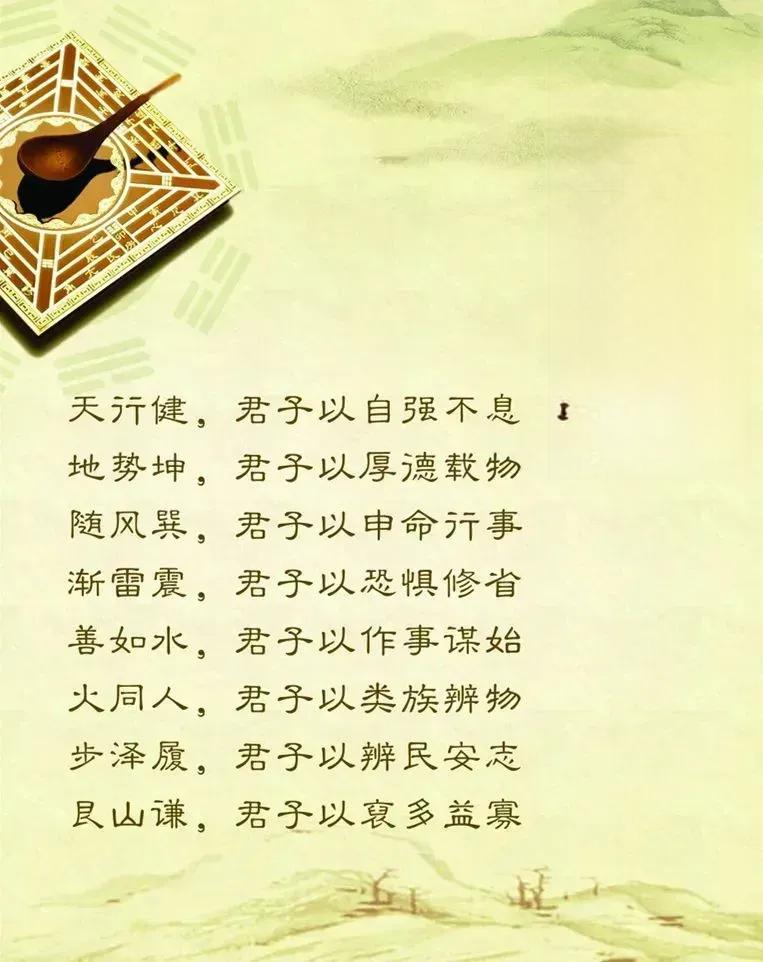 天行健，君子以自强不息
地势坤，君子以厚德载物
随风巽，君子以申命行事
渐雷震，君子以恐惧修省
善如水，君子以作事谋始
火同人，君子以类族辨物
步泽履，君子以辨民安志
艮山谦，君子以裒多益寡